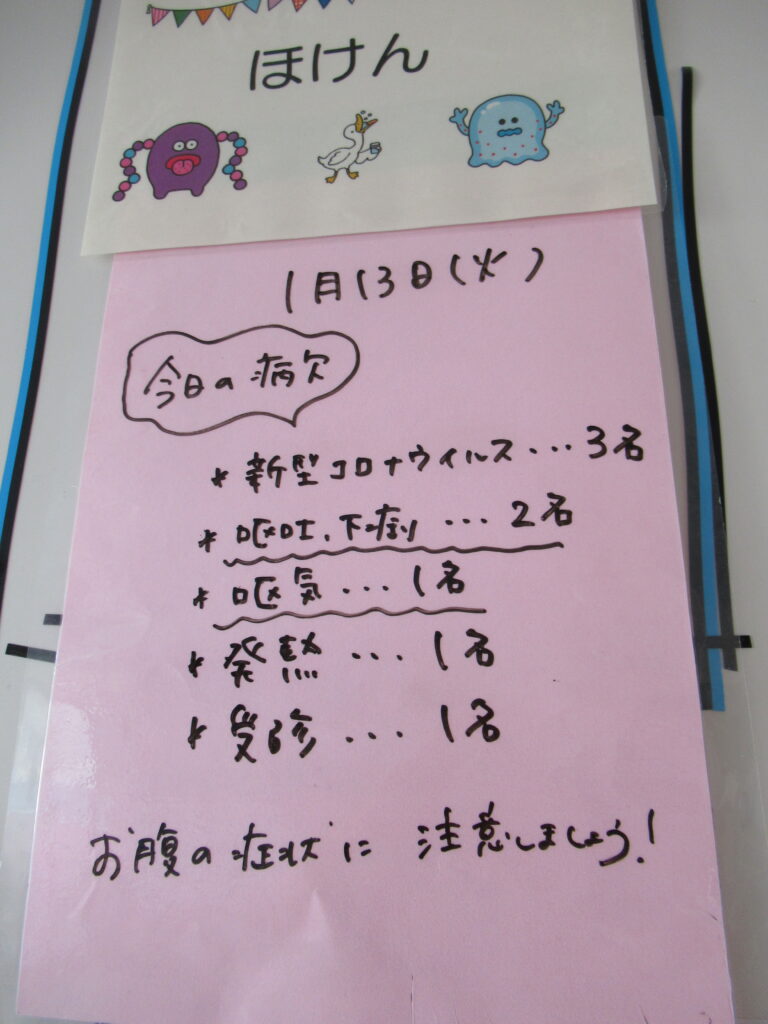 ほけん
1月13日(火)
今日の病欠
* 新型コロナウイルス...3名
* 嘔吐、下痢 ... 2名
* 嘔気...1名
* 発熱 ... 1名
* 受診 ... 1名
お腹の症状に 注意しましょう!